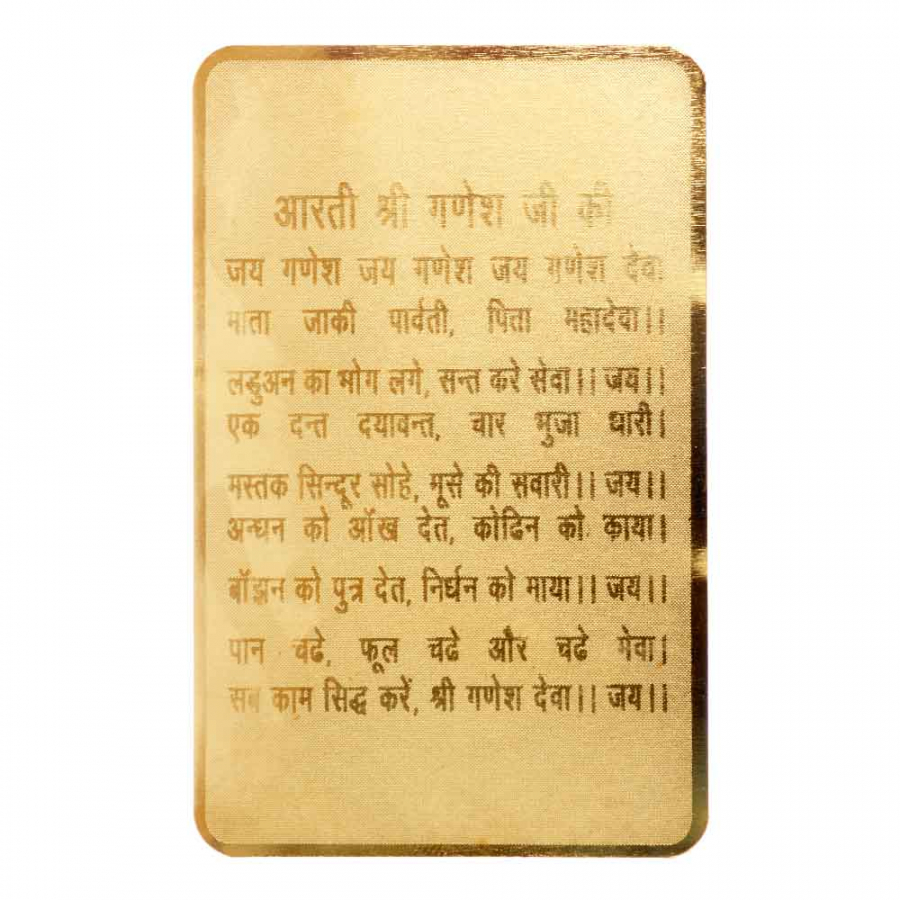 आरती श्री गणेश जी की
जय गणेश जय गणेश जय गणेश देवा
माता जाकी पार्वती, पिता महादेवा।।
लडुअन का भोग लगे, सन्त करे सेवा।। जय।।
एक दन्त दयावन्त, चार भुजा धारी।
मस्तक सिन्दूर सोहे, मूसे की सवारी।। जय।।
अन्धन को आँख देत, कोढिन को काया।
बाँझन को पुत्र देत, निर्धन को माया।। जय।।
पान चढे, फूल चढे और चढे मेवा।
सब काम सिद्ध करें, श्री गणेश देवा।। जय।।